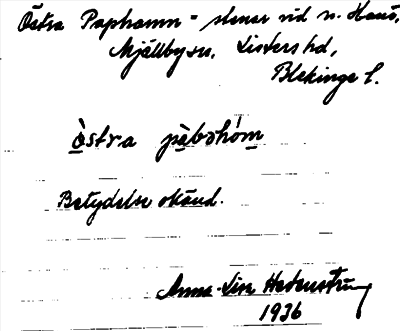 Östra Paphamn = stenar vid n. Hanö,
Mjällby sn, Listers hd,
Blekinge l.
östra pàbshómn
Betydelse okänd.
Anna-Lisa Hedenström
1936